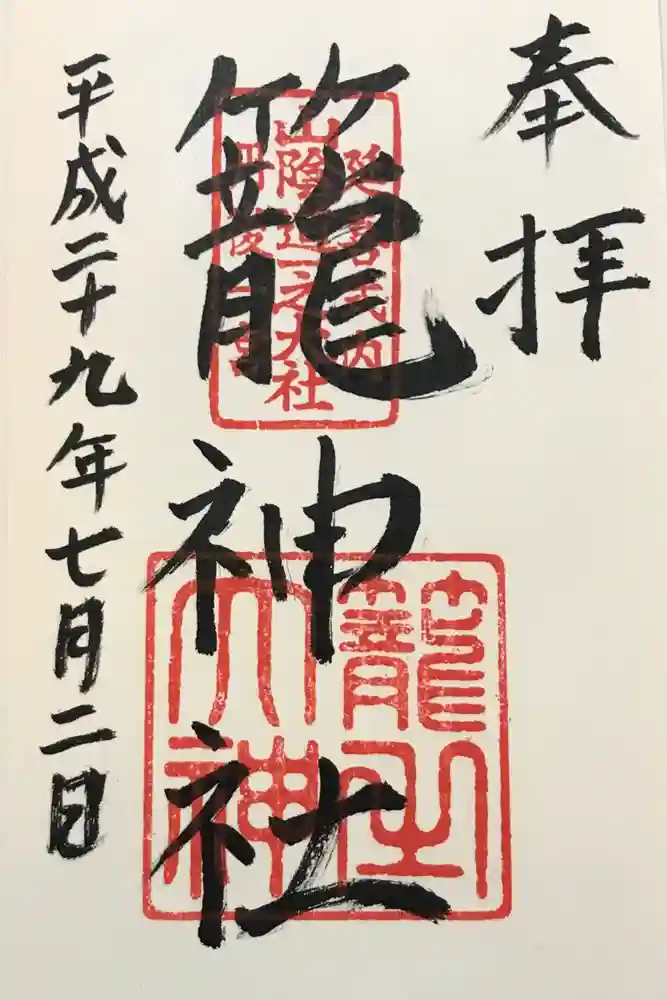 奉拝
籠神社
延喜式内
山陰道一之大社
丹後一宮
籠之
大神
平成二十九年七月二日